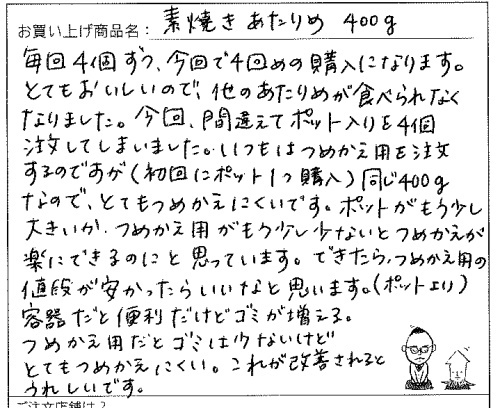 お買い上げ商品名：素焼きあたりめ 400g
毎回4個ずつ、今回で4回めの購入になります。
とてもおいしいので、他のあたりめが食べられなく
なりました。今回、間違えてポット入りを4個
注文してしまいました。いつもはつめかえ用を注文
するのですが（初回にポット1つ購入）同じ400g
なので、とてもつめかえにくいです。ポットがもう少し
大きいか、つめかえ用がもう少し少ないとつめかえが
楽にできるのにと思っています。できたら、つめかえ用の
値段が安かったらいいなと思います。（ポットより）
容器だと便利だけどゴミが増える。
つめかえ用だとゴミは少ないけど
とてもつめかえにくい。これが改善されると
うれしいです。
ご注文店舗は？